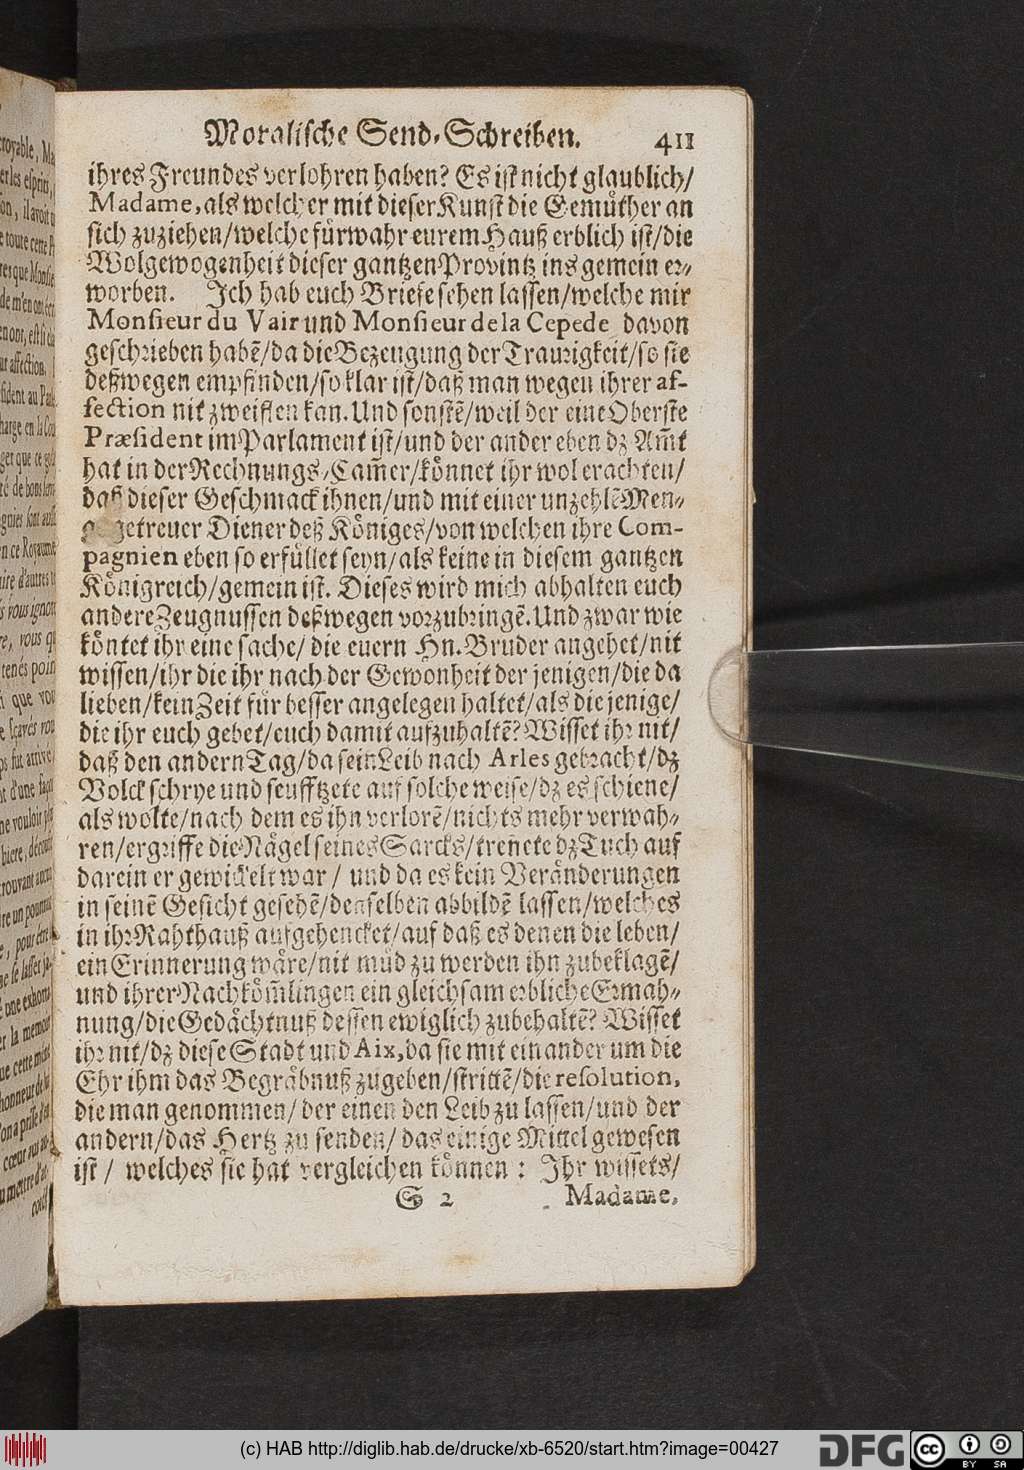 Moralische Send-Schreiben. 411
ihres Freundes verlohren haben? Es ist nicht glaublich/
Madame, als welcher mit dieser Kunst die Gemüther an
sich zuziehen/welche fürwahr eurem Hauß erblich ist/die
Wolgewogenheit dieser gantzen Provintz ins gemein er-
worben. Ich hab euch Briefe sehen lassen/welche mir
Monsieur du Vair und Monsieur de la Cepede davon
geschrieben habẽ/da die Bezeugung der Traurigkeit/so sie
deßwegen empfinden/so klar ist/daß man wegen ihrer af-
fection nit zweifflen kan. Und sonstẽ/weil der eine Oberste
Præsident im Parlament ist/und der ander eben dz Am̃t
hat in der Rechnungs-Cam̃er/könnet ihr wol erachten/
daß dieser Geschmack ihnen/und mit einer unzehlẽ Men-
getreuer Diener deß Königes/von welchen ihre Com-
pagnien eben so erfüllet seyn/als keine in diesem gantzen
Königreich/gemein ist. Dieses wird mich abhalten euch
andere Zeugnussen deßwegen vorzubringẽ. Und zwar wie
köntet ihr eine sache/ die euern Hn. Bruder angehet/nit
wissen/ihr die ihr nach der Gewonheit der jenigen/die da
lieben/kein Zeit für besser angelegen haltet/als die jenige/
die ihr euch gebet/euch damit aufzuhaltẽ? Wisset ihr nit/
daß den andern Tag/da sein Leib nach Arles gebracht/dz
Volck schrye und seufftzete auf solche weise/dz es schiene/
als wolte/nach dem es ihn verlorẽ/nichts mehr verwah-
ren/ergriffe die Nägel seines Sarcks/treñete dz Tuch auf
darein er gewickelt war/ und da es kein Veränderungen
in seinẽ Gesicht gesehẽ/denselben abbildẽ lassen/welches
in ihr Rahthauß aufgehencket/auf daß es denen die leben/
ein Erinnerung wäre/nit müd zu werden ihn zubeklagẽ/
und ihrer Nachköm̃lingen ein gleichsam erbliche Ermah-
nung/die Gedächtnuß dessen ewiglich zubehaltẽ? Wisset
ihr nit/dz diese Stadt und Aix, da sie mit einander um die
Ehr ihm das Begräbnuß zugeben/strittẽ/die resolution,
die man genommen/ der einen den Leib zu lassen/und der
andern/das Hertz zu senden/ das einige Mittel gewesen
ist / welches sie hat vergleichen können: Ihr wissets/
S 2 Madame,
(c) HAB http://diglib.hab.de/drucke/xb-6520/start.htm?image=00427
DFG
cc BY SA